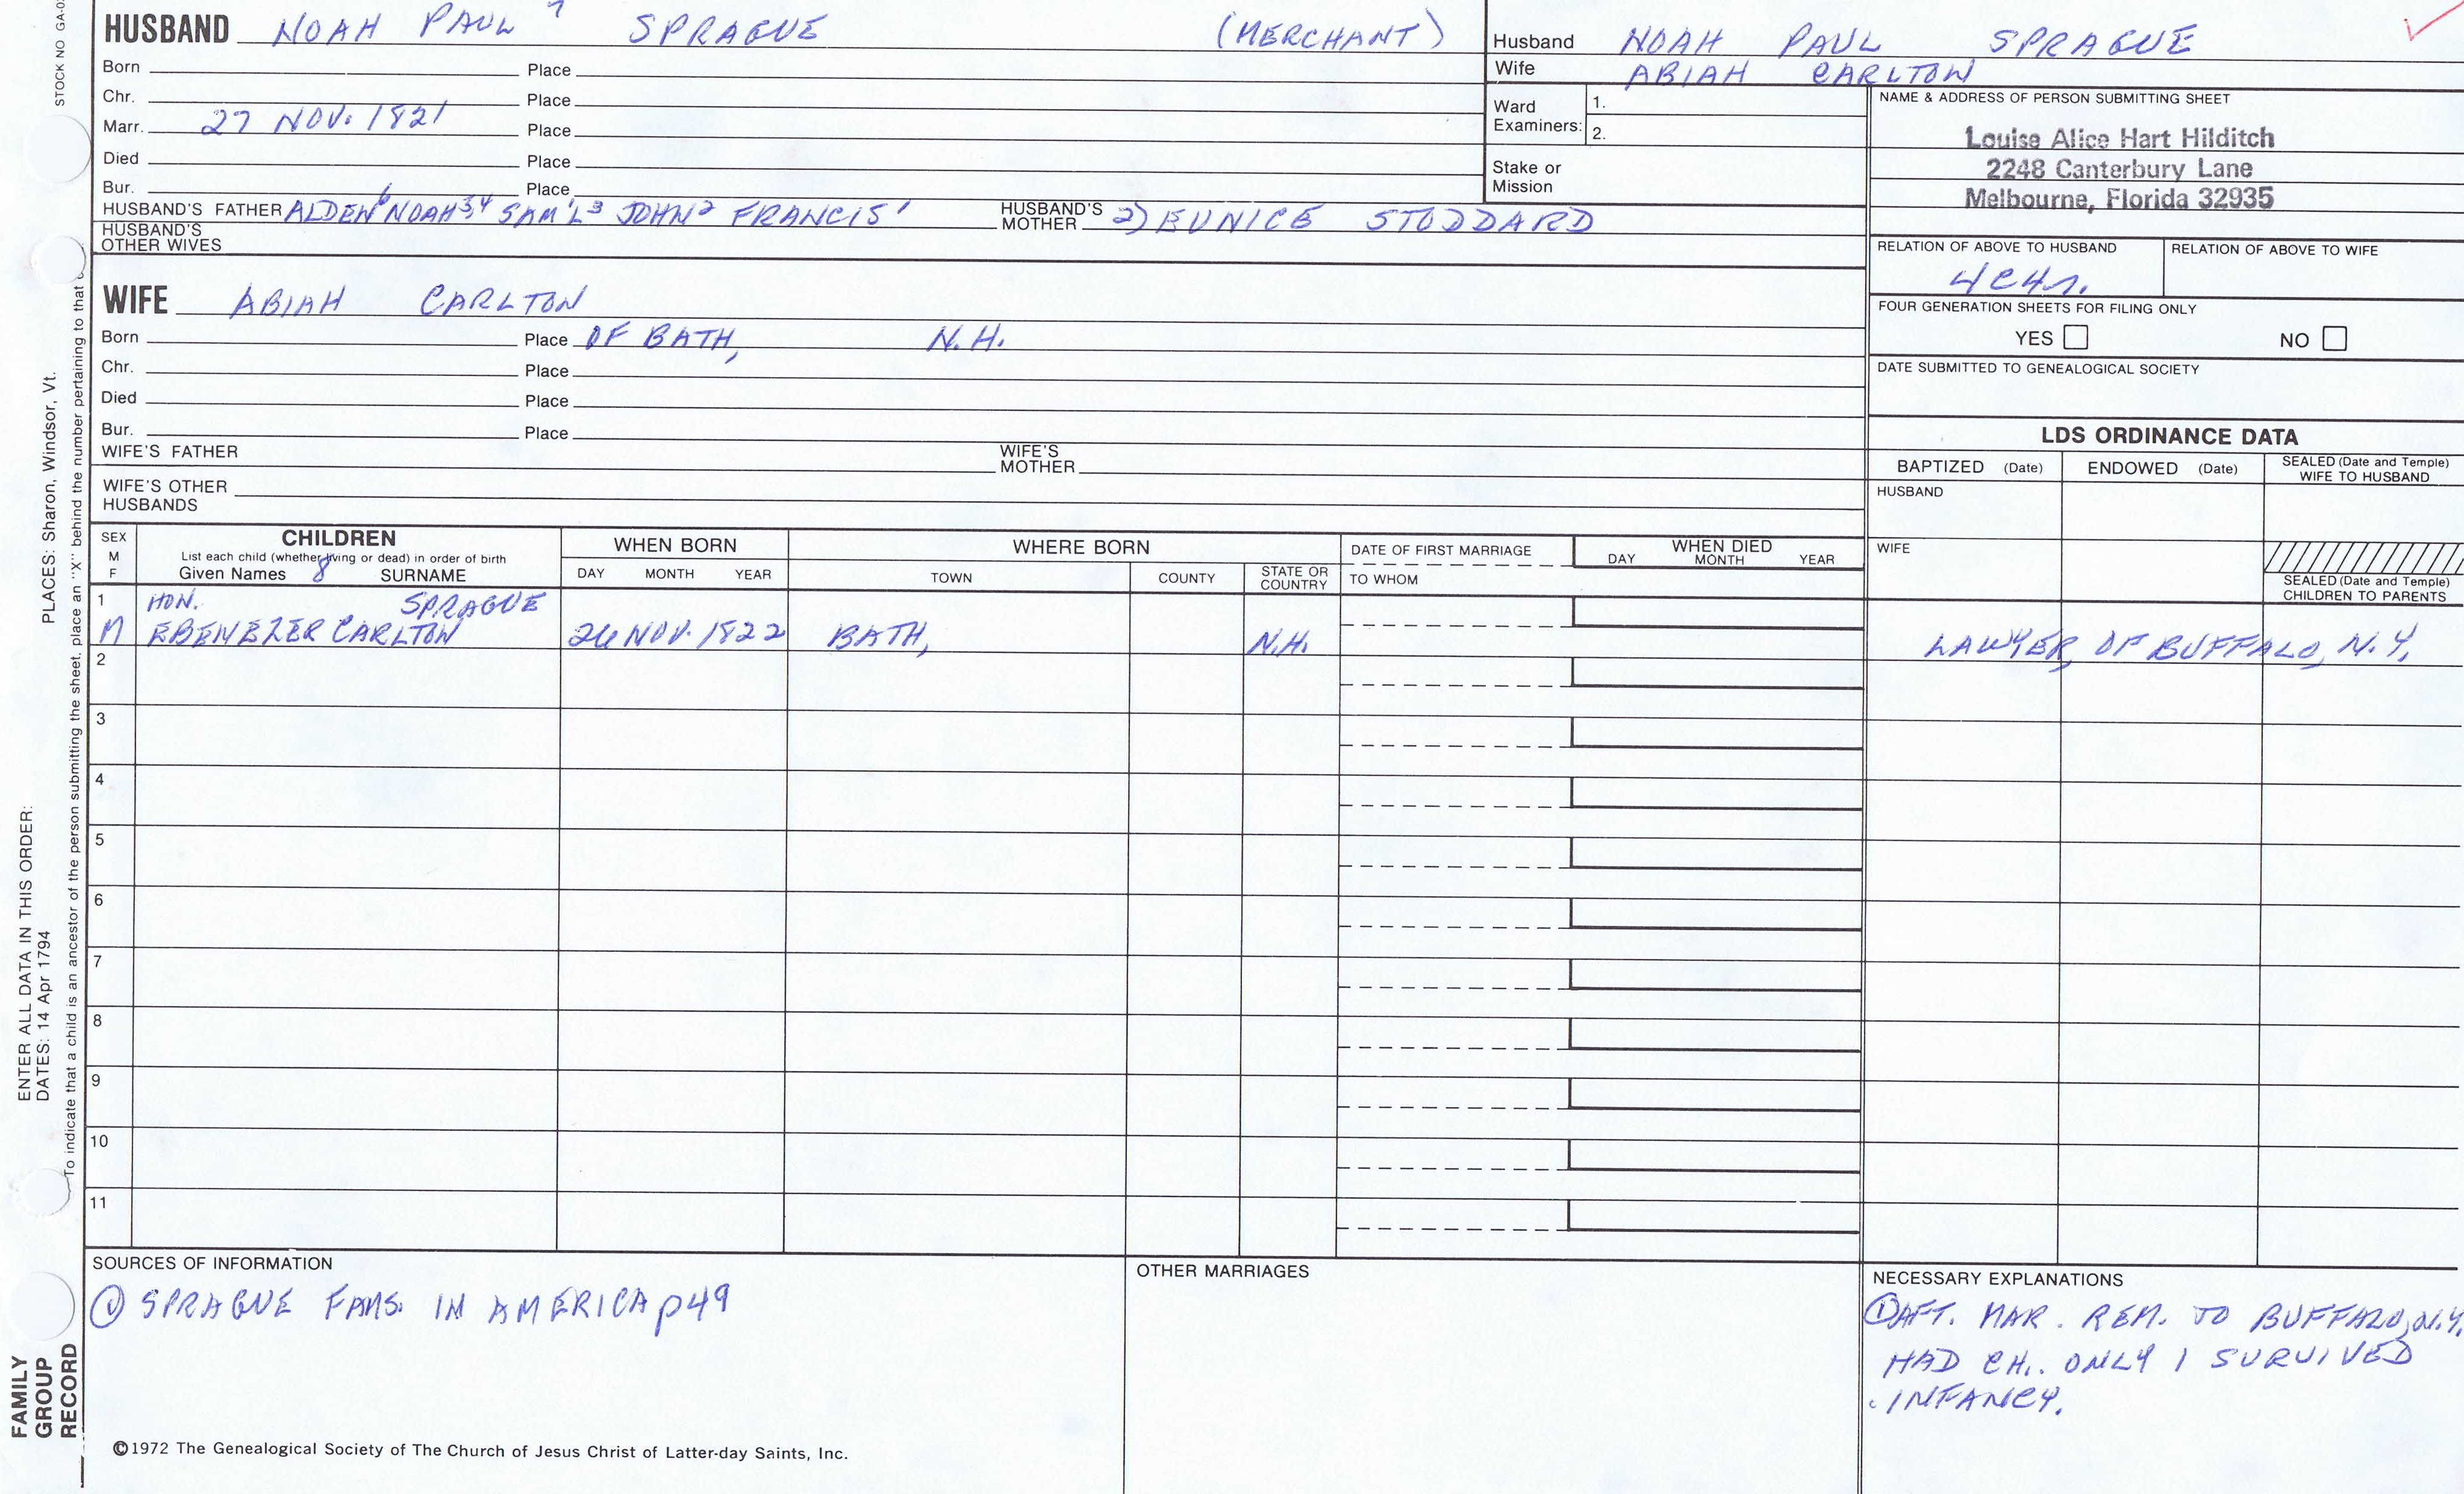 STOCK NO GA-0
HUSBAND NOAH PAUL 7 SPRAGUE (MERCHANT)
Born Place
Chr. Place
Marr. 27 NOV. 1821 Place
Died Place
Bur. Place
HUSBAND'S FATHER ALDEN6 NOAH5,4 SAM'L3 JOHN2 FRANCIS1 HUSBAND'S MOTHER 2) EUNICE STODDARD
HUSBAND'S OTHER WIVES
Husband NOAH PAUL SPRAGUE
Wife ABIAH CARLTON
Ward Examiners: 1.
2.
Stake or Mission
NAME & ADDRESS OF PERSON SUBMITTING SHEET
Louise Alice Hart Hilditch
2248 Canterbury Lane
Melbourne, Florida 32935
RELATION OF ABOVE TO HUSBAND RELATION OF ABOVE TO WIFE
4C4r.
FOUR GENERATION SHEETS FOR FILING ONLY
YES NO
DATE SUBMITTED TO GENEALOGICAL SOCIETY
WIFE ABIAH CARLTON
Born Place OF BATH, N.H.
Chr. Place
Died Place
Bur. Place
WIFE'S FATHER WIFE'S MOTHER
WIFE'S OTHER HUSBANDS
LDS ORDINANCE DATA
BAPTIZED (Date) ENDOWED (Date) SEALED (Date and Temple) WIFE TO HUSBAND
HUSBAND
WIFE
SEALED (Date and Temple)
CHILDREN TO PARENTS
SEX M F
CHILDREN
List each child (whether living or dead) in order of birth
Given Names 8 SURNAME
WHEN BORN
DAY MONTH YEAR
WHERE BORN
TOWN COUNTY STATE OR COUNTRY
DATE OF FIRST MARRIAGE
TO WHOM
WHEN DIED
DAY MONTH YEAR
1 HON. SPRAGUE
M EBENEZER CARLTON 26 NOV. 1822 BATH, N.H. LAWYER, OF BUFFALO, N.Y.
2
3
4
5
6
7
8
9
10
11
SOURCES OF INFORMATION
① SPRAGUE FAMS. IN AMERICA p49
OTHER MARRIAGES
NECESSARY EXPLANATIONS
① AFT. MAR. REM. TO BUFFALO, N.Y.
HAD CH.. ONLY 1 SURVIVED
INFANCY.
©1972 The Genealogical Society of The Church of Jesus Christ of Latter-day Saints, Inc.
FAMILY
GROUP
RECORD
ENTER ALL DATA IN THIS ORDER:
DATES: 14 Apr 1794 PLACES: Sharon, Windsor, Vt.
To indicate that a child is an ancestor of the person submitting the sheet, place an "X" behind the number pertaining to that